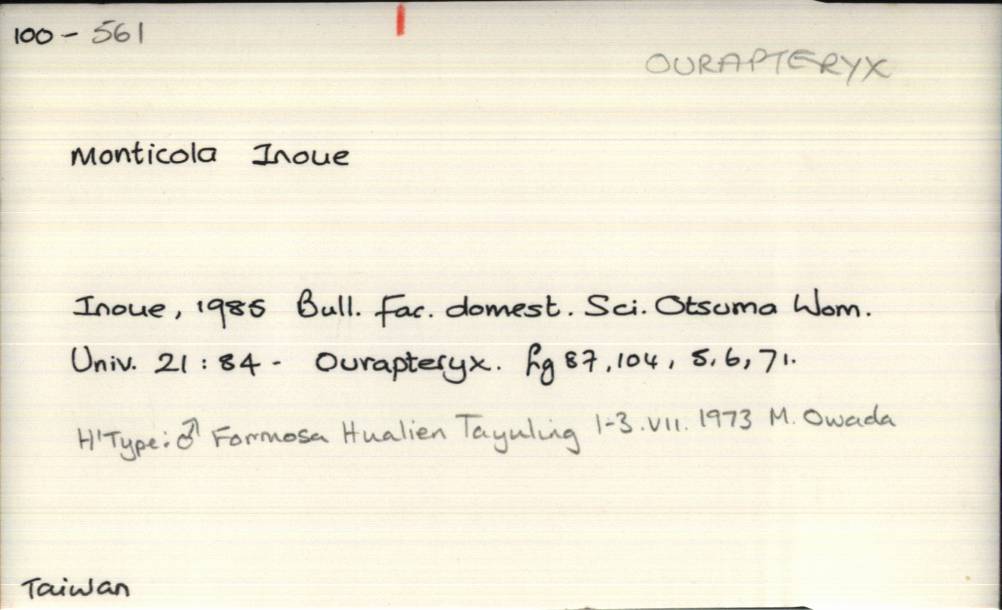 100 - 561
OURAPTERYX
Monticola Inoue
Inoue, 1985 Bull. Fac. domest. Sci. Otsuma Wom.
Univ. 21 : 84 - Ourapteryx. fig 87, 104, 5, 6, 71.
H'Type: ♂ Formosa Hualien Tayuling 1-3.VII. 1973 M. Owada
Taiwan